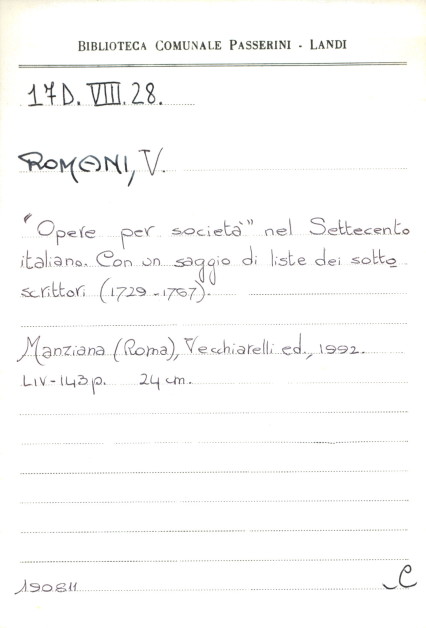 BIBLIOTECA COMUNALE PASSERINI - LANDI
17D. VIII. 28.
ROMANI, V.
"Opere per società" nel Settecento
italiano. Con un saggio di liste dei sotto
scrittori (1729-1767).
Manziana (Roma), Vecchiarelli ed., 1992.
LIV-143 p. 24 cm.
190811
C